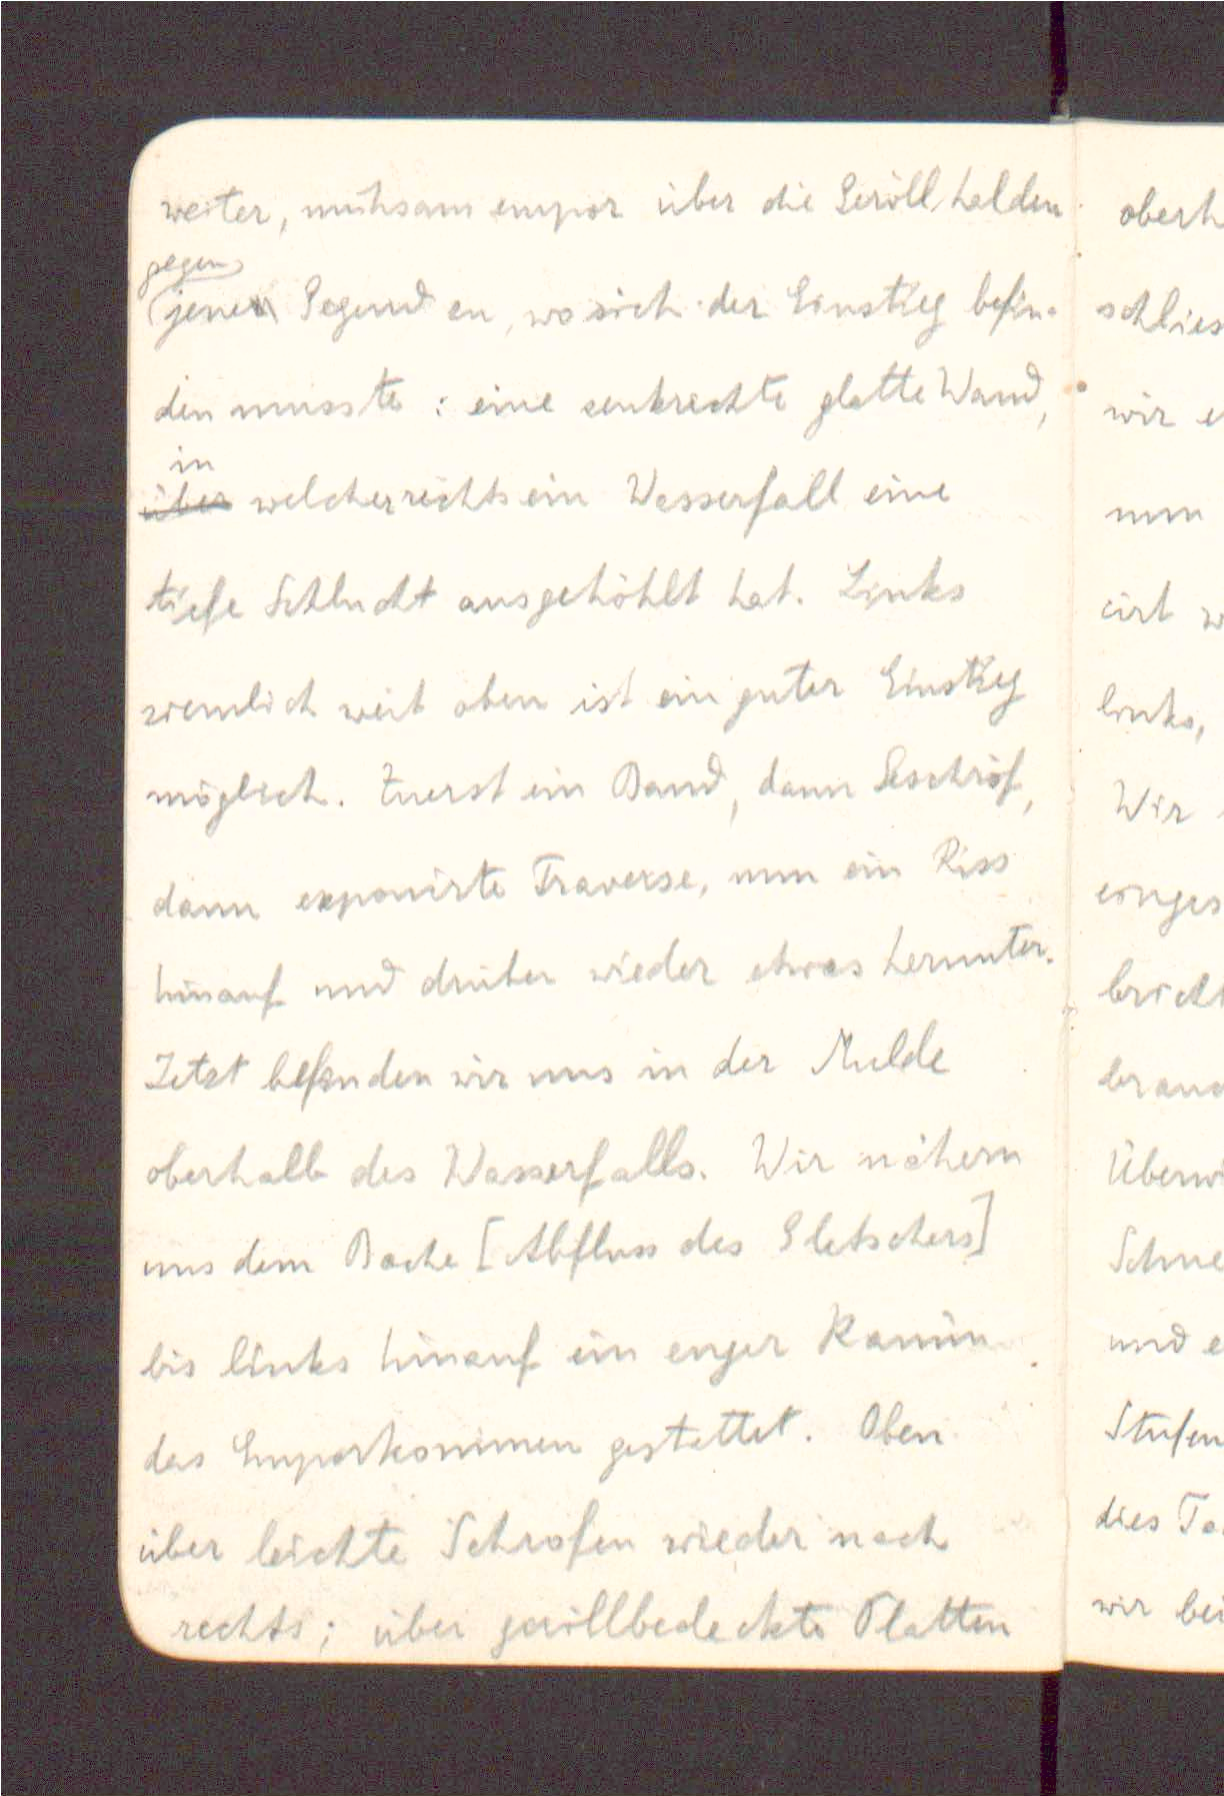 weiter, mühsam empor über die Geröllhalden
gegen
jene Gegend en, wo sich der Einstieg befin-
den musste: eine senkrechte glatte Wand,
in
über welcher rechts ein Wasserfall eine
tiefe Schlucht ausgehöhlt hat. Links
ziemlich weit oben ist ein guter Einstieg
möglich. Zuerst ein Band, dann Geschröf,
dann exponirte Traverse, nun ein Riss
hinauf und drüber wieder etwas herunter.
Jetzt befinden wir uns in der Mulde
oberhalb des Wasserfalls. Wir nähern
uns dem Bache [Abfluss des Gletschers]
bis links hinauf ein enger Kamin
das Emporkommen gestattet. Oben
über leichte Schrofen wieder nach
rechts; über geröllbedeckte Platten
oberh
schlies
wir e
nun
cirt w
links,
Wir
einges
brich
brauc
Überwi
Schne
und e
Stufen
dies Ta
wir bei